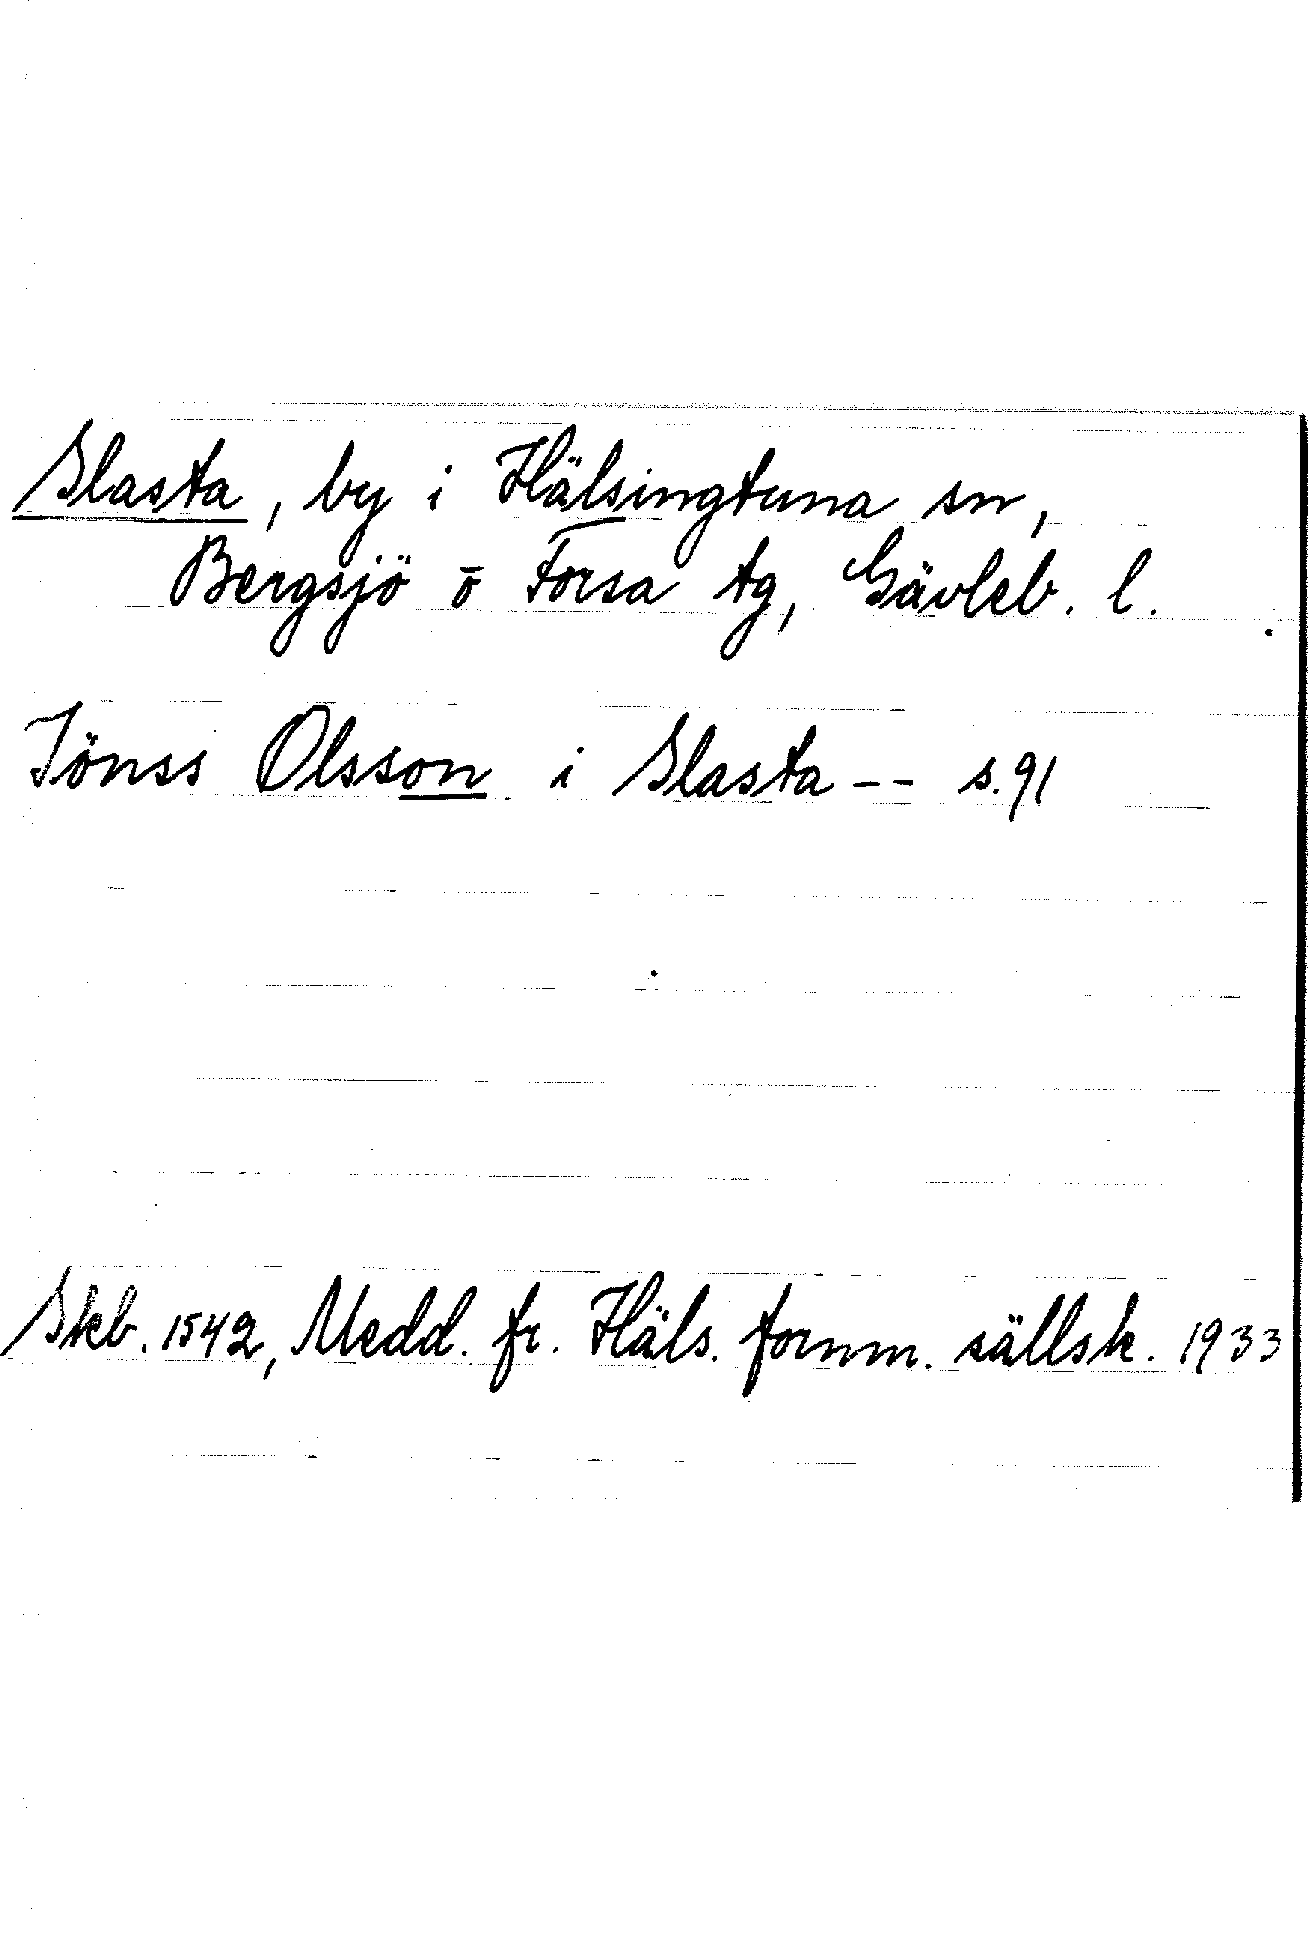 Slasta, by i Hälsingtuna sn,
Bergsjö o Forsa tg, Gävleb. l.
Jönss Olsson i Slasta -- s. 91
Skb. 1542, Medd. fr. Häls. fornm. sällsk. 1933